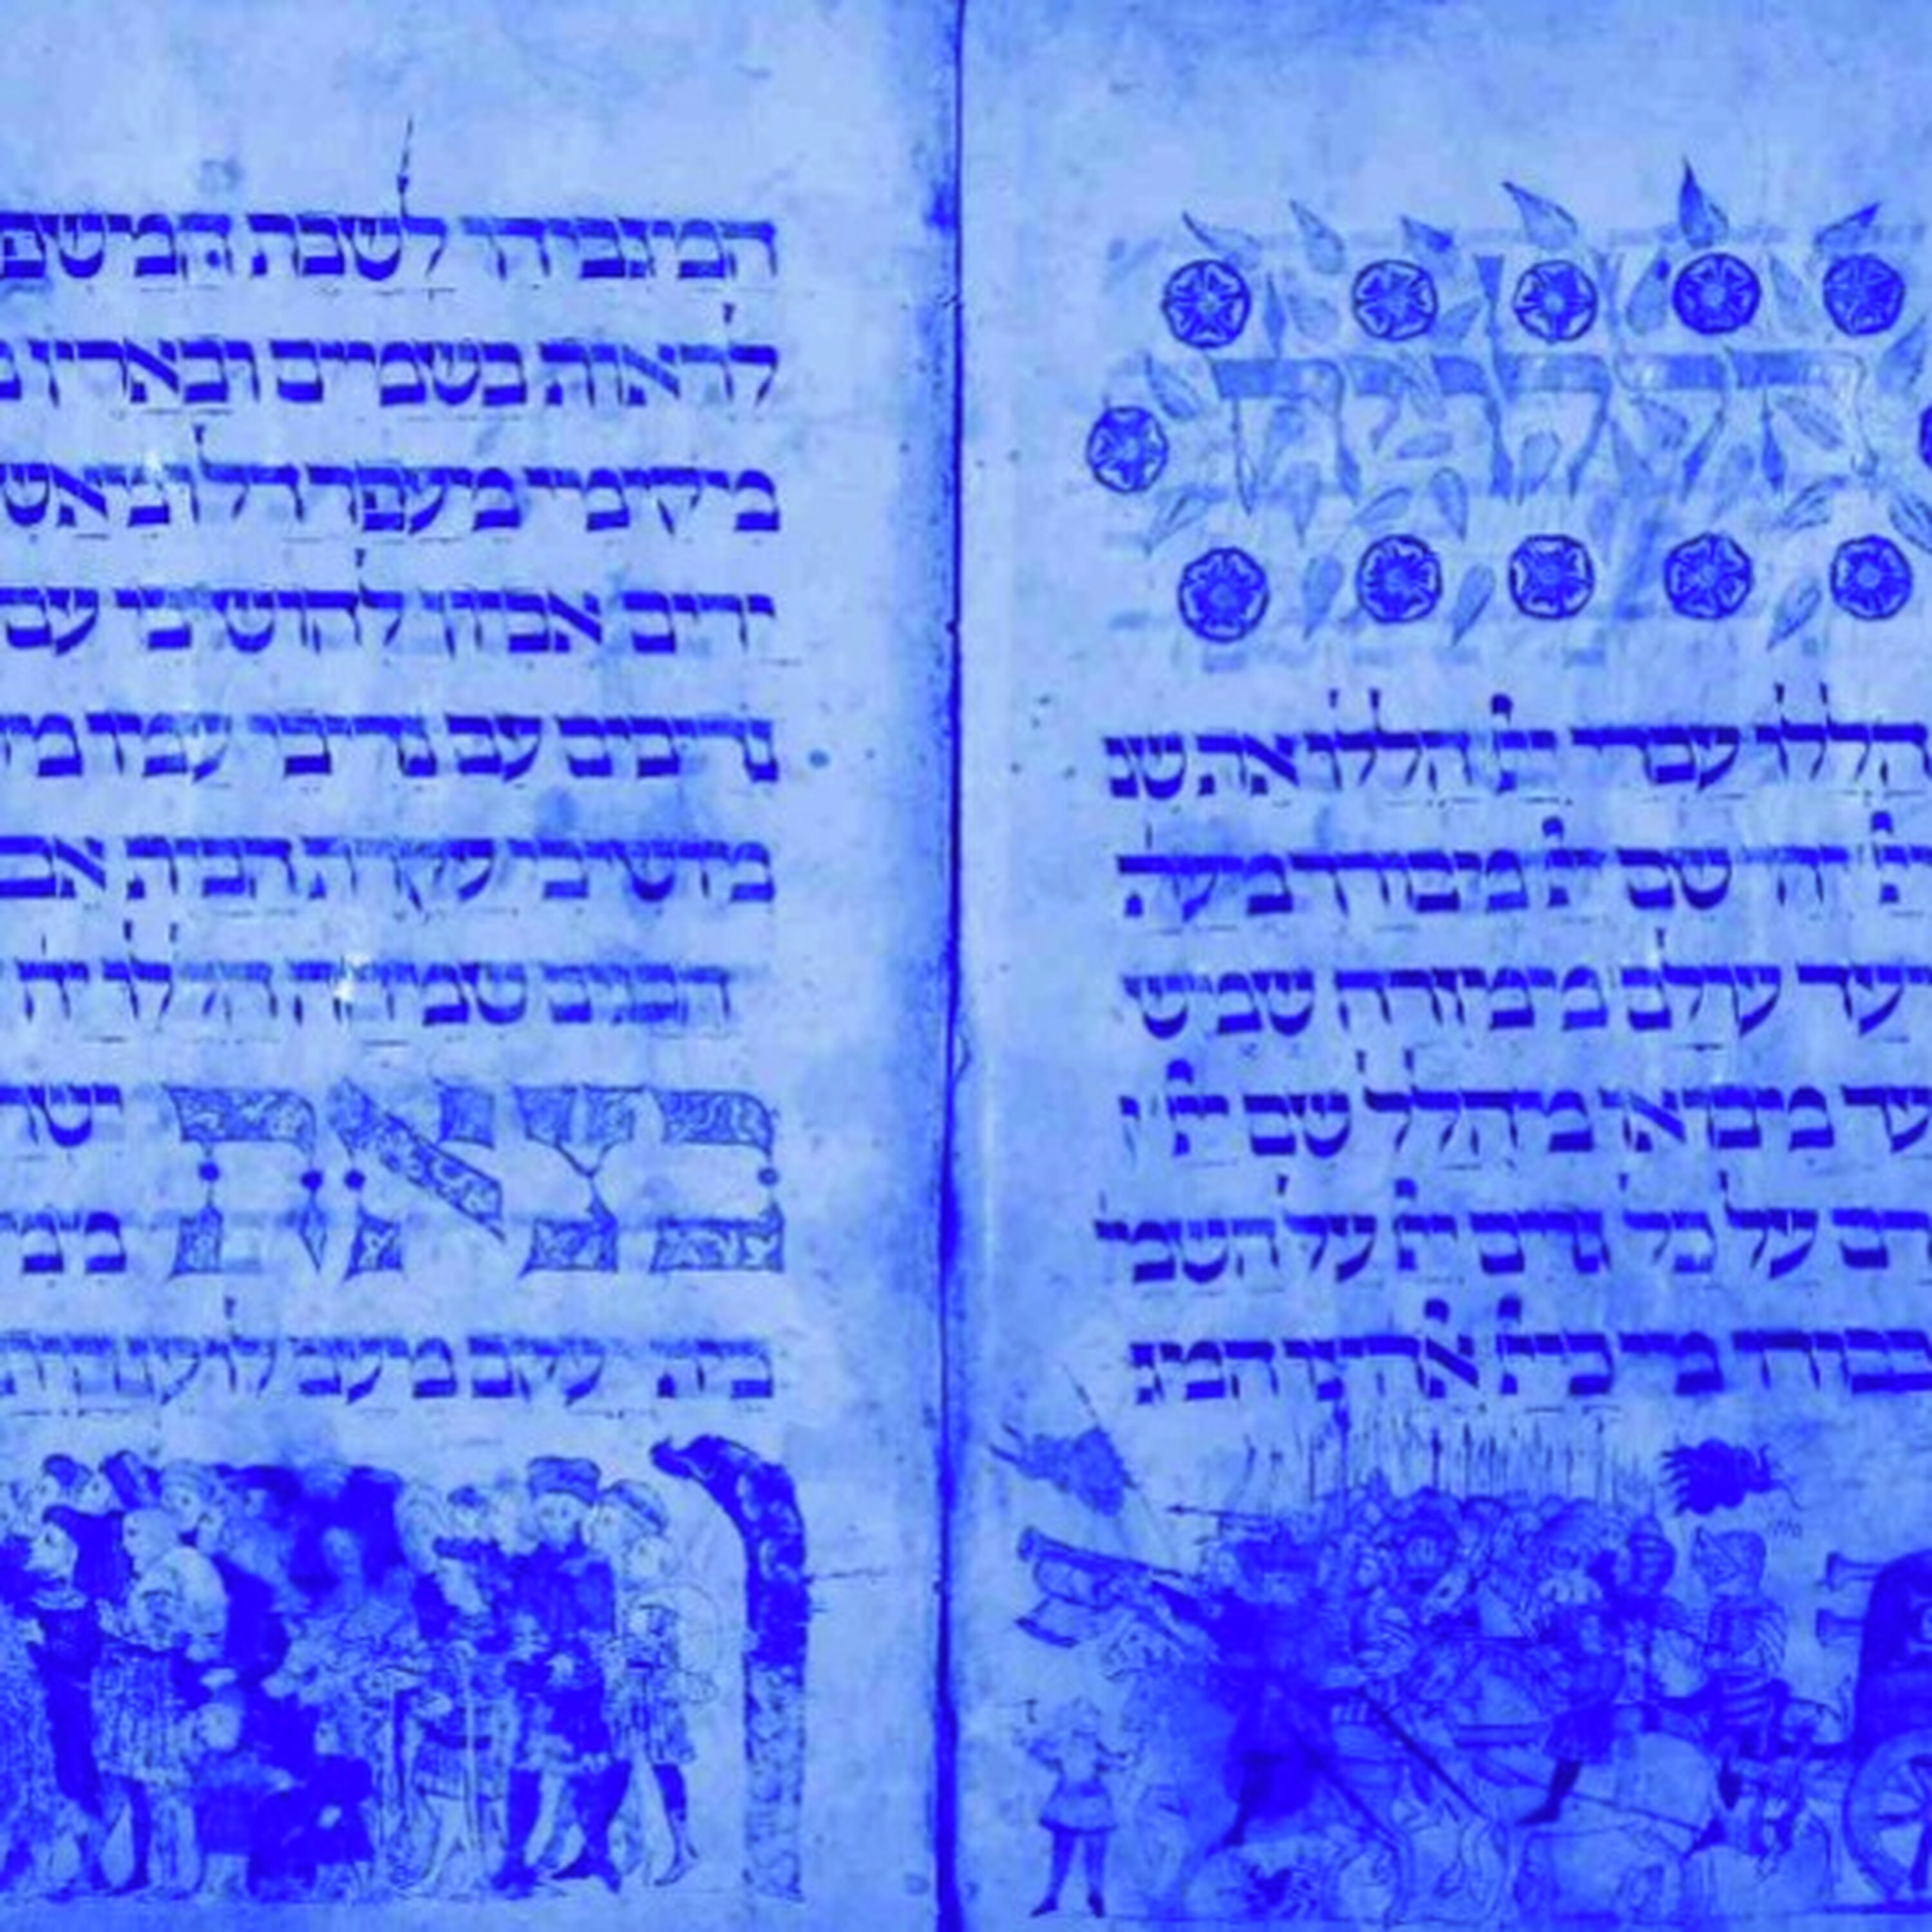 הללויה
הללו עבדי יי הללו את ש
יי יהי שם יי מבורך מעת
ועד עולם ממזרח שמש
עד מבואו מהולל שם יי
רם על כל גוים יי על השמי
כבודו מי כיי אלהינו המג
המגביהי לשבת המשפ
לראות בשמים ובארץ
מקימי מעפר דל ומאש
ירים אביון להושיבי עם
נדיבים עם נדיבי עמו מ
מושיבי עקרת הבית אם
הבנים שמחה הללויה
בצאת ישר
ממ
בית יעקב מעם לועז היתה